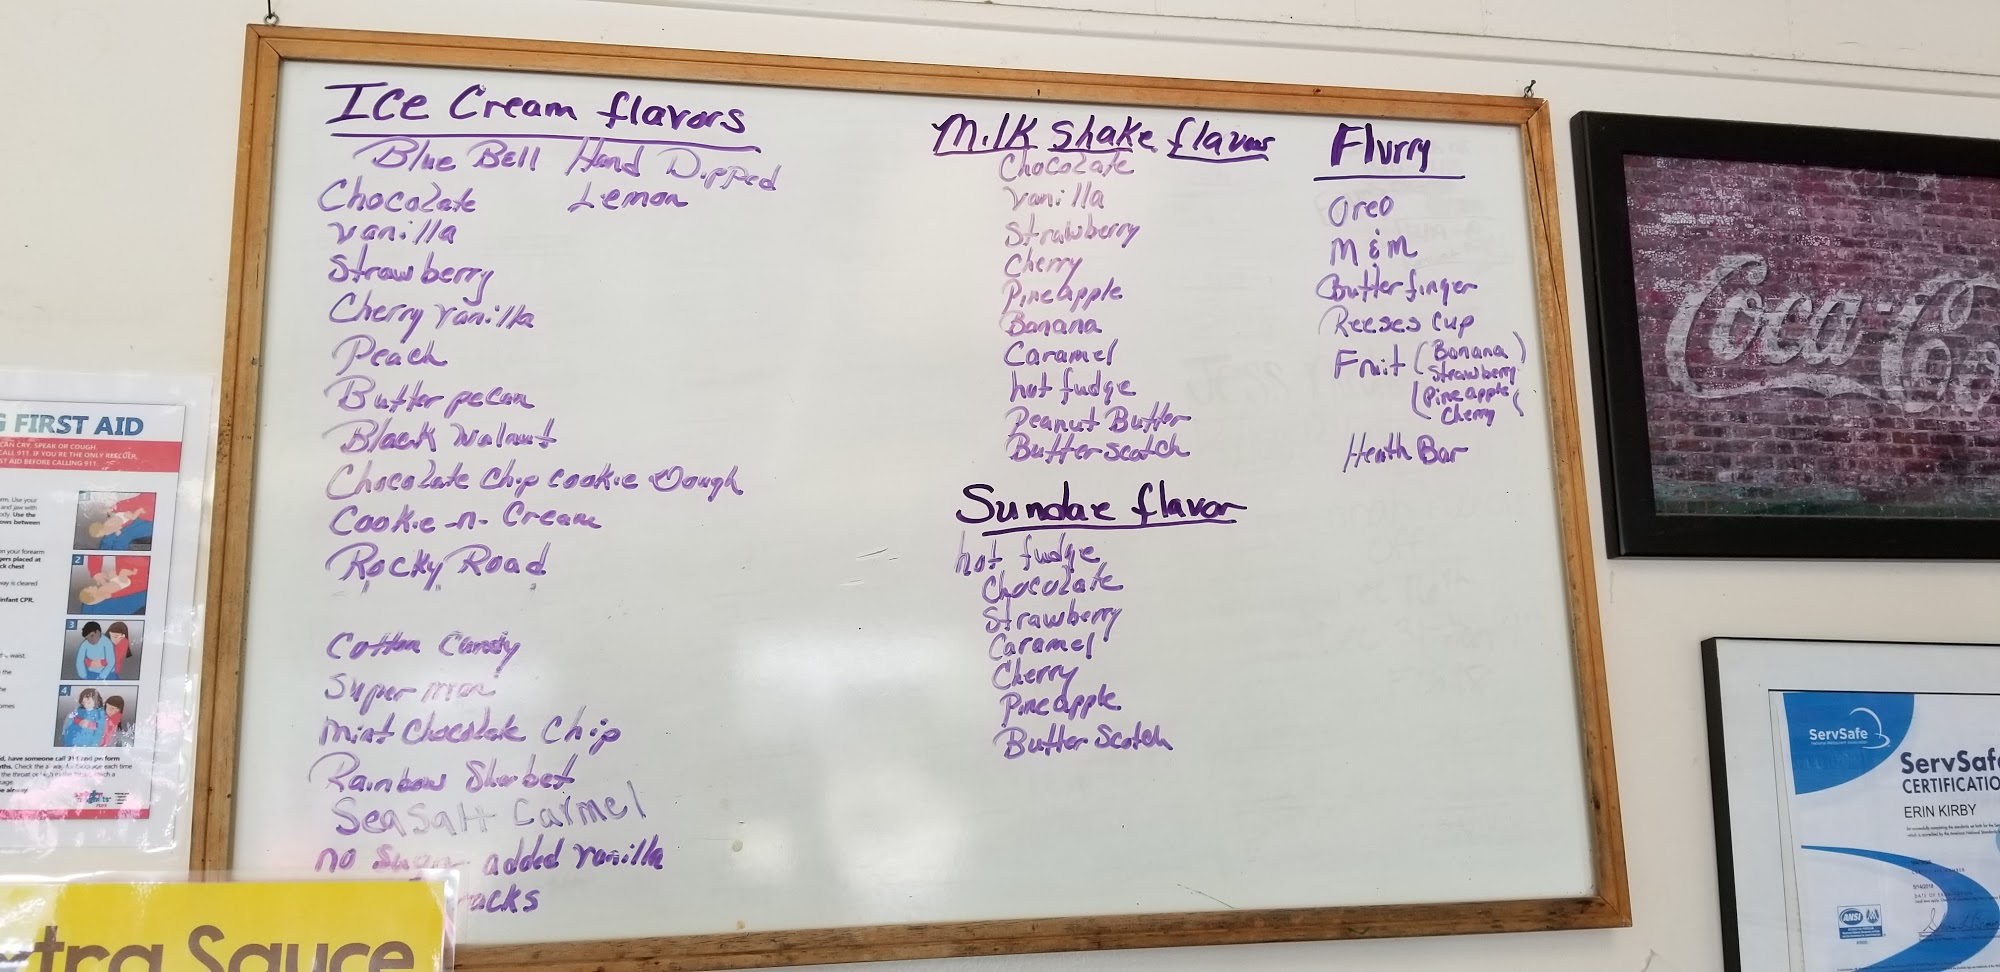 Ice Cream flavors
Blue Bell Hand Dipped
Chocolate Lemon
vanilla
Strawberry
Cherry vanilla
Peach
Butter pecan
Black Walnut
Chocolate Chip cookie Dough
Cookie -n- Cream
Rocky Road
Cotton Candy
Super man
mint Chocolate Chip
Rainbow Sherbet
Sea Salt Carmel
no Sugar added vanilla
racks
Milk Shake flavor
Chocolate
Vanilla
Strawberry
Cherry
Pineapple
Banana
Caramel
hot fudge
Peanut Butter
Butterscotch
Sundae flavor
hot fudge
Chocolate
Strawberry
Caramel
Cherry
Pineapple
Butter Scotch
Flurry
Oreo
M & M
Butterfinger
Reeses Cup
Fruit (Banana)
Strawberry
(Pineapple
Cherry
Heath Bar
Coca-Co
G FIRST AID
CAN CRY, SPEAK OR COUGH
CALL 911. IF YOU'RE THE ONLY RESCUER,
ST AID BEFORE CALLING 911.
1
2
3
4
xtra Sauce
ServSafe
ServSafe
CERTIFICATIO
ERIN KIRBY
ANSI